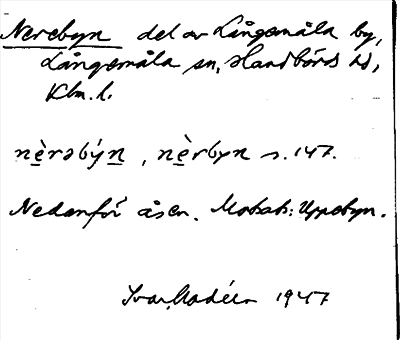 Nerebyn del av Långemåla by,
Långemåla sn, Handbörds hd,
Klm. l.
nè̱rəbýṉ, nè̱rbyn s. 147.
Nedanför åsen. Motsats: Uppebyn.
Ivar Modéer 1947